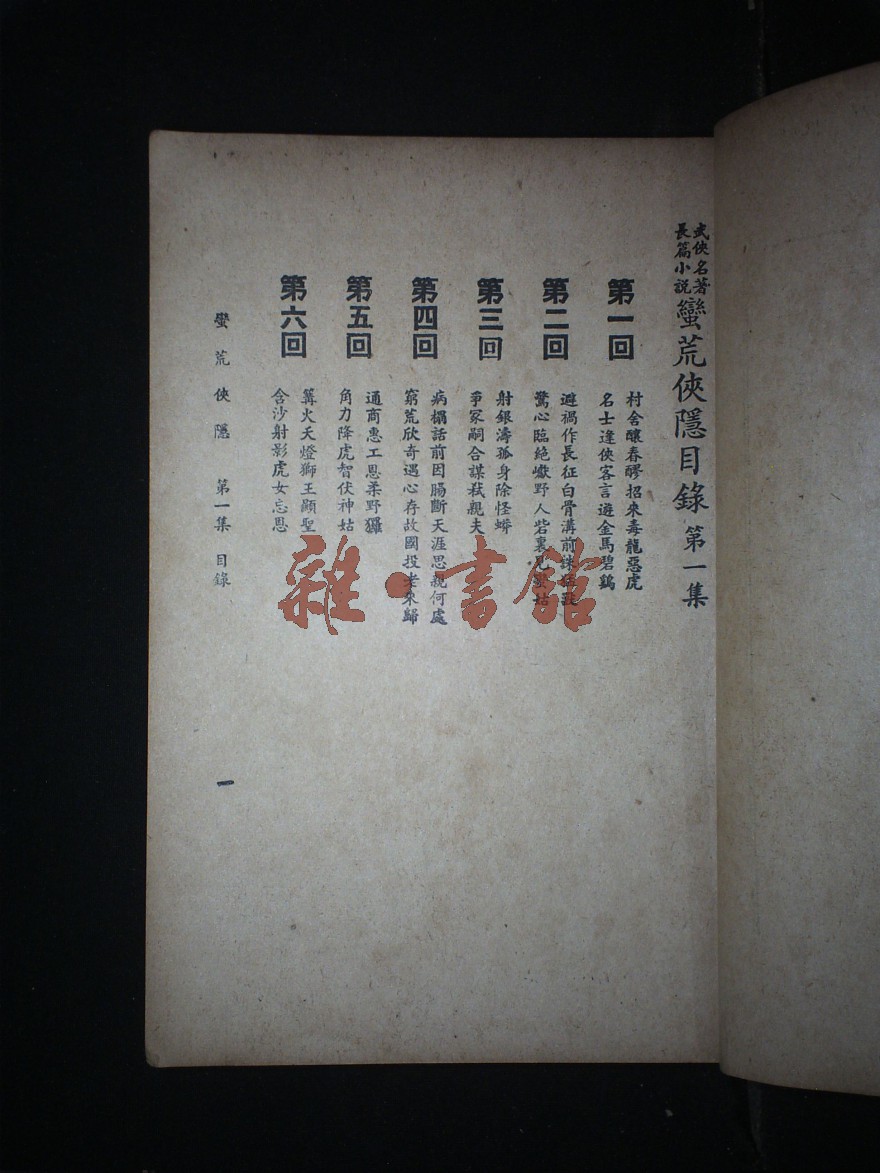 武俠名著
長篇小說
蠻荒俠隱目錄 第一集
第一回
村舍釀春醪招來毒龍惡虎
名士逢俠客言避金馬碧鷄
第二回
避禍作長征白骨溝前誅
驚心臨絶巘野人砦裏見 姑
第三回
射銀濤孤身除怪蟒
爭冢嗣合謀弒親夫
第四回
病榻話前因腸斷天涯思親何處
窮荒欣奇遇心存故國投老來歸
第五回
通商惠工恩柔野玀
角力降虎智伏神姑
第六回
篝火天燈獅王顯聖
含沙射影虎女忘恩
蠻荒俠隱 第一集 目錄
一
雜·書館